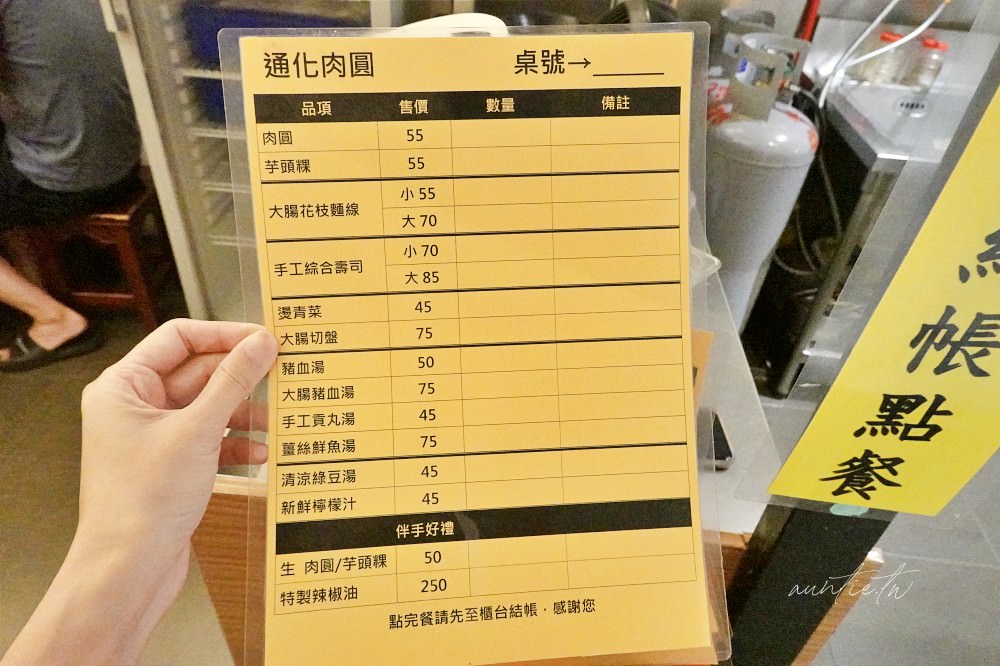 通化肉圓 桌號→
品項 售價 數量 備註
肉圓 55
芋頭粿 55
大腸花枝麵線 小 55
大 70
手工綜合壽司 小 70
大 85
燙青菜 45
大腸切盤 75
豬血湯 50
大腸豬血湯 75
手工貢丸湯 45
薑絲鮮魚湯 75
清涼綠豆湯 45
新鮮檸檬汁 45
伴手好禮
生 肉圓/芋頭粿 50
特製辣椒油 250
點完餐請先至櫃台結帳，感謝您
帳
點
餐
auntie.tw